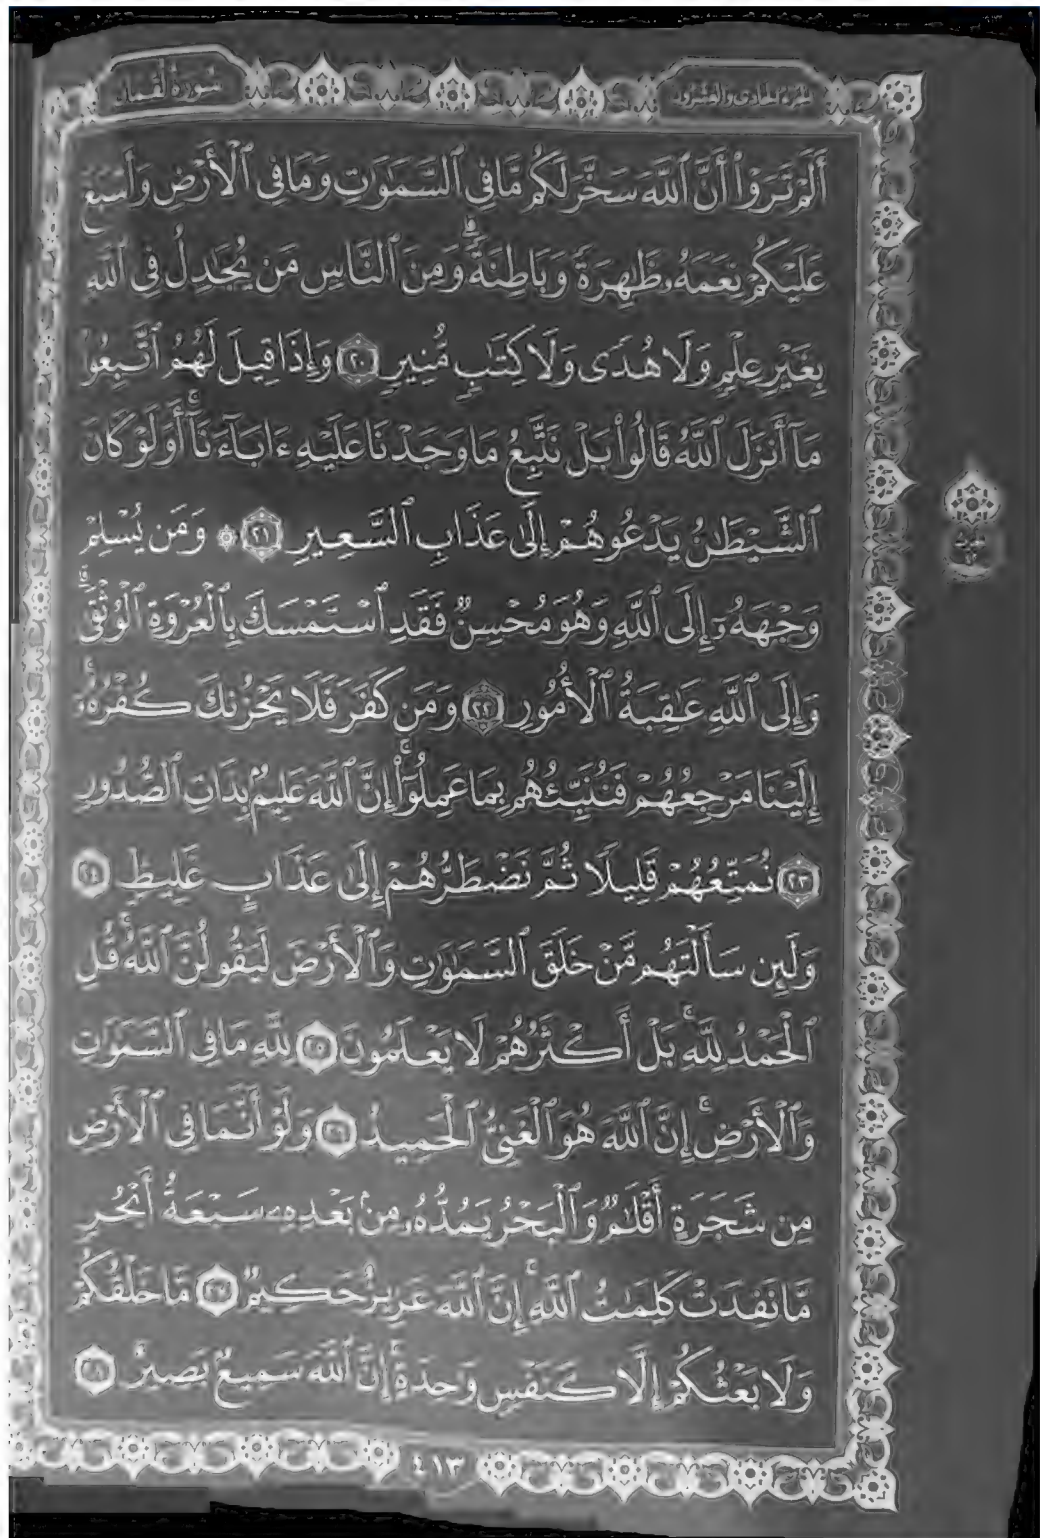 سُورَةُ لُقْمَان
الجزء الحادي والعشرون
أَلَمْ تَرَوْا۟ أَنَّ ٱللَّهَ سَخَّرَ لَكُم مَّا فِى ٱلسَّمَـٰوَٰتِ وَمَا فِى ٱلْأَرْضِ وَأَسْبَغَ
عَلَيْكُمْ نِعَمَهُۥ ظَـٰهِرَةً وَبَاطِنَةً ۗ وَمِنَ ٱلنَّاسِ مَن يُجَـٰدِلُ فِى ٱللَّهِ
بِغَيْرِ عِلْمٍ وَلَا هُدًى وَلَا كِتَـٰبٍ مُّنِيرٍ ٢٠ وَإِذَا قِيلَ لَهُمُ ٱتَّبِعُوا۟
مَآ أَنزَلَ ٱللَّهُ قَالُوا۟ بَلْ نَتَّبِعُ مَا وَجَدْنَا عَلَيْهِ ءَابَآءَنَآ ۚ أَوَلَوْ كَانَ
ٱلشَّيْطَـٰنُ يَدْعُوهُمْ إِلَىٰ عَذَابِ ٱلسَّعِيرِ ٢١ ۞ وَمَن يُسْلِمْ
وَجْهَهُۥٓ إِلَى ٱللَّهِ وَهُوَ مُحْسِنٌ فَقَدِ ٱسْتَمْسَكَ بِٱلْعُرْوَةِ ٱلْوُثْقَىٰ ۗ
وَإِلَى ٱللَّهِ عَـٰقِبَةُ ٱلْأُمُورِ ٢٢ وَمَن كَفَرَ فَلَا يَحْزُنكَ كُفْرُهُۥٓ ۚ
إِلَيْنَا مَرْجِعُهُمْ فَنُنَبِّئُهُم بِمَا عَمِلُوٓا۟ ۚ إِنَّ ٱللَّهَ عَلِيمٌۢ بِذَاتِ ٱلصُّدُورِ
٢٣ نُمَتِّعُهُمْ قَلِيلًا ثُمَّ نَضْطَرُّهُمْ إِلَىٰ عَذَابٍ غَلِيظٍ ٢٤
وَلَئِن سَأَلْتَهُم مَّنْ خَلَقَ ٱلسَّمَـٰوَٰتِ وَٱلْأَرْضَ لَيَقُولُنَّ ٱللَّهُ ۚ قُلِ
ٱلْحَمْدُ لِلَّهِ ۚ بَلْ أَكْثَرُهُمْ لَا يَعْلَمُونَ ٢٥ لِلَّهِ مَا فِى ٱلسَّمَـٰوَٰتِ
وَٱلْأَرْضِ ۚ إِنَّ ٱللَّهَ هُوَ ٱلْغَنِىُّ ٱلْحَمِيدُ ٢٦ وَلَوْ أَنَّمَا فِى ٱلْأَرْضِ
مِن شَجَرَةٍ أَقْلَـٰمٌ وَٱلْبَحْرُ يَمُدُّهُۥ مِنۢ بَعْدِهِۦ سَبْعَةُ أَبْحُرٍ
مَّا نَفِدَتْ كَلِمَـٰتُ ٱللَّهِ ۗ إِنَّ ٱللَّهَ عَزِيزٌ حَكِيمٌ ٢٧ مَّا خَلْقُكُمْ
وَلَا بَعْثُكُمْ إِلَّا كَنَفْسٍ وَٰحِدَةٍ ۗ إِنَّ ٱللَّهَ سَمِيعٌۢ بَصِيرٌ ٢٨
٤١٣